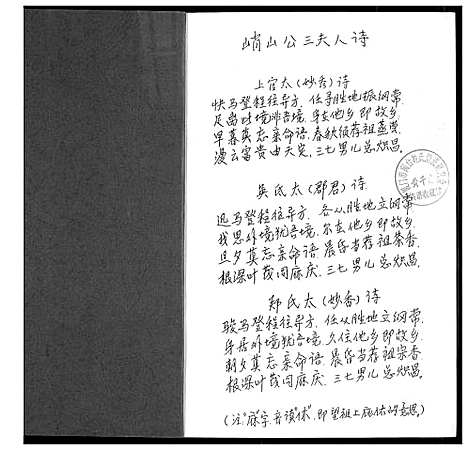 峭山公三夫人诗
上官太(妙秀)诗
快马登程往异方,任寻胜地振纲常.
足离此境非吾境,身在他乡即故乡.
早暮莫忘亲命语,春秋须荐祖蒸尝.
漫云富贵由天定,三七男儿总炽昌.
吴氏太(郡君)诗
迅马登程往异方,各从胜地立纲常.
我思外境犹吾境,尔去他乡即故乡.
旦夕莫忘亲命语,晨昏当荐祖茶香.
根深叶茂同庥庆,三七男儿总炽昌.
郑氏太(妙香)诗
骏马登程往异方,任从胜地立纲常.
身居外境犹吾境,久住他乡即故乡.
朝夕莫忘亲命语,晨昏当荐祖宗香.
根深叶茂同庥庆,三七男儿总炽昌.
(注"庥"字音读"休",即望祖上庇佑的意思.)